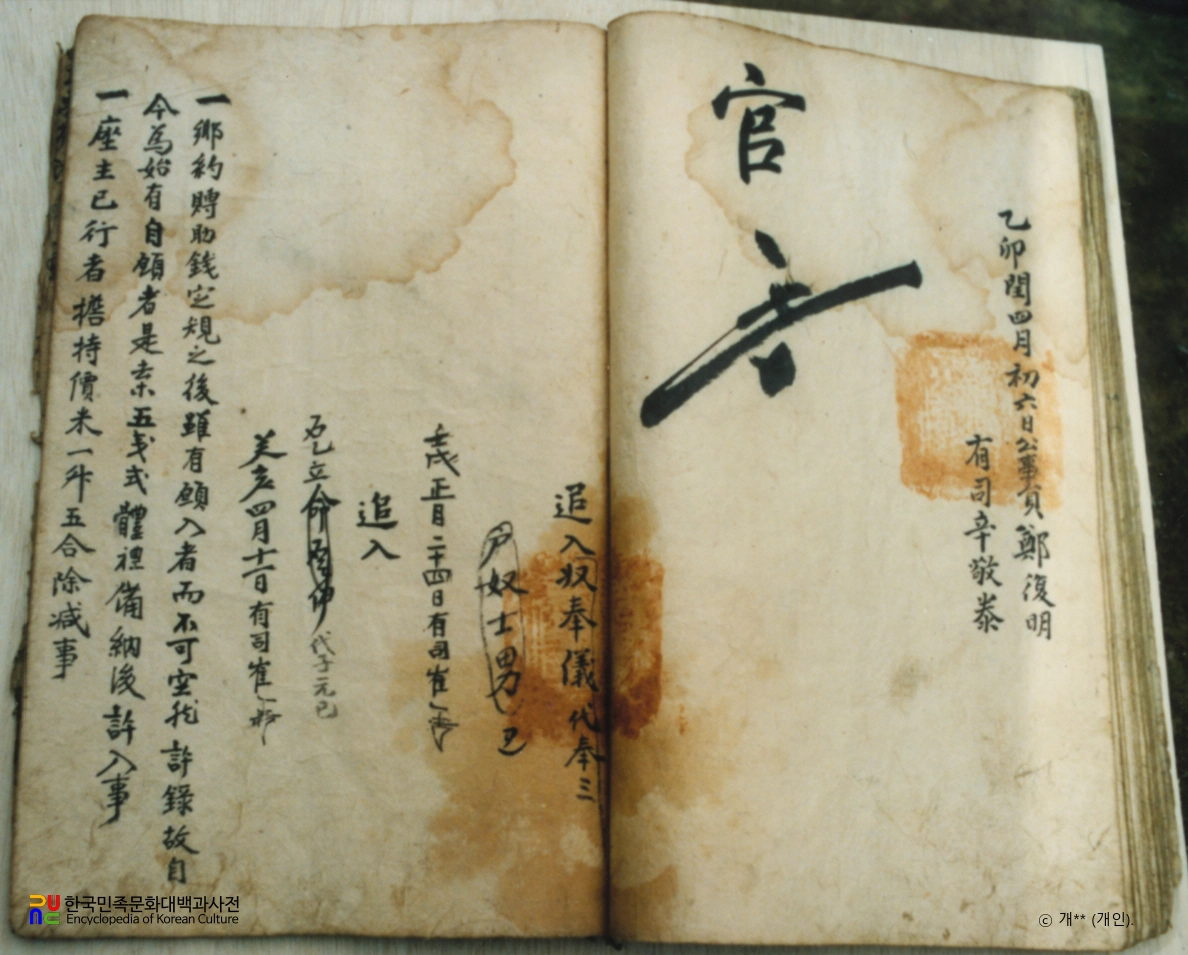 官
乙卯閏四月初六日公事員鄭復明
有司辛敬泰
追入奴奉儀代奉三
戶奴士男
正月二十四日有司崔
追入
立
代子元已
癸亥四月十一日有司崔
一鄕約賻助錢定規之後雖有願入者而不可空然許錄故自
今爲始有自願者是去等五戔式體禮備納後許入事
一座主已行者擔持價米一升五合除減事
한국민족문화대백과사전
Encyclopedia of Korean Culture
ⓒ 개** (개인).